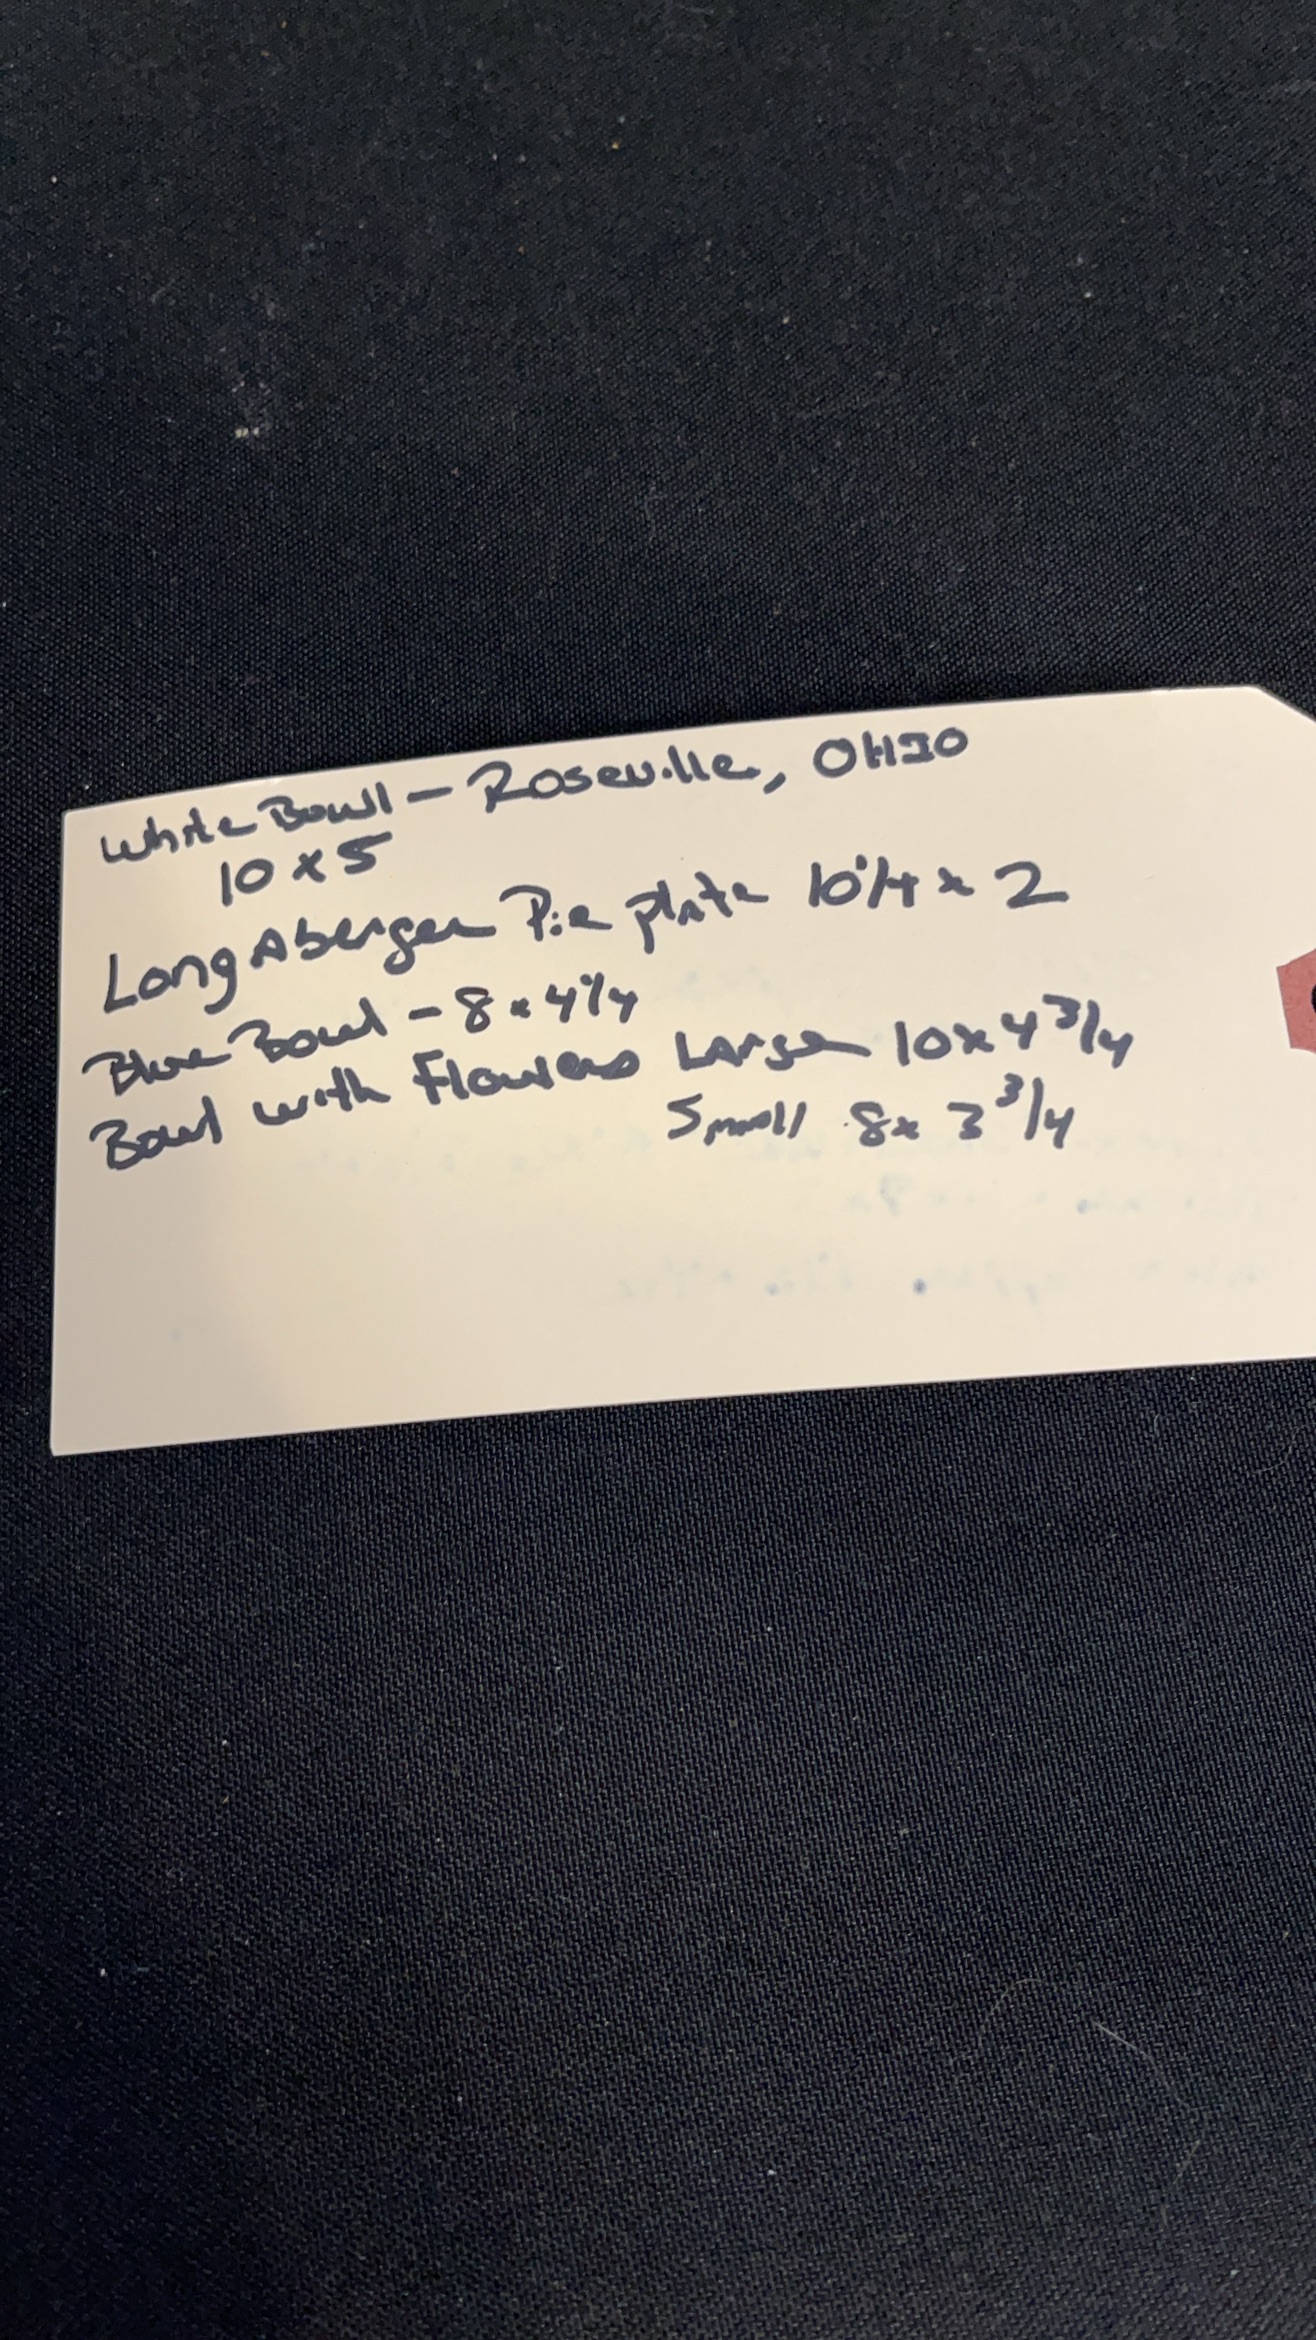 White Bowl - Roseville, OHIO
10 x 5
LongAberger Pie plate 10 1/4 x 2
Blue Bowl - 8 x 4 1/4
Bowl with Flowers Large 10 x 4 3/4
Small 8 x 3 3/4